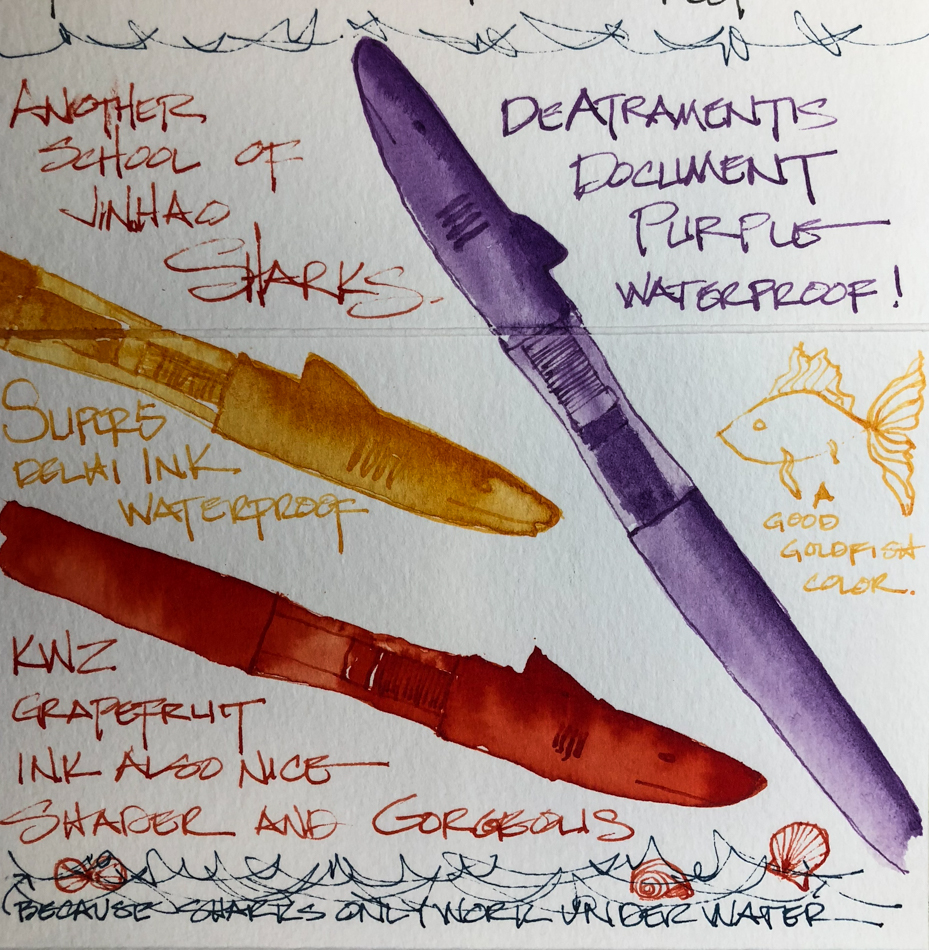 ANOTHER
SCHOOL OF
JINHAO
SHARKS.
DEATRAMENTIS
DOCUMENT
PURPLE
WATERPROOF!
SUPER5
DELHI INK
WATERPROOF
A
GOOD
GOLDFISH
COLOR.
KWZ
GRAPEFRUIT
INK ALSO NICE
SHADER AND GORGEOUS
BECAUSE SHARKS ONLY WORK UNDER WATER